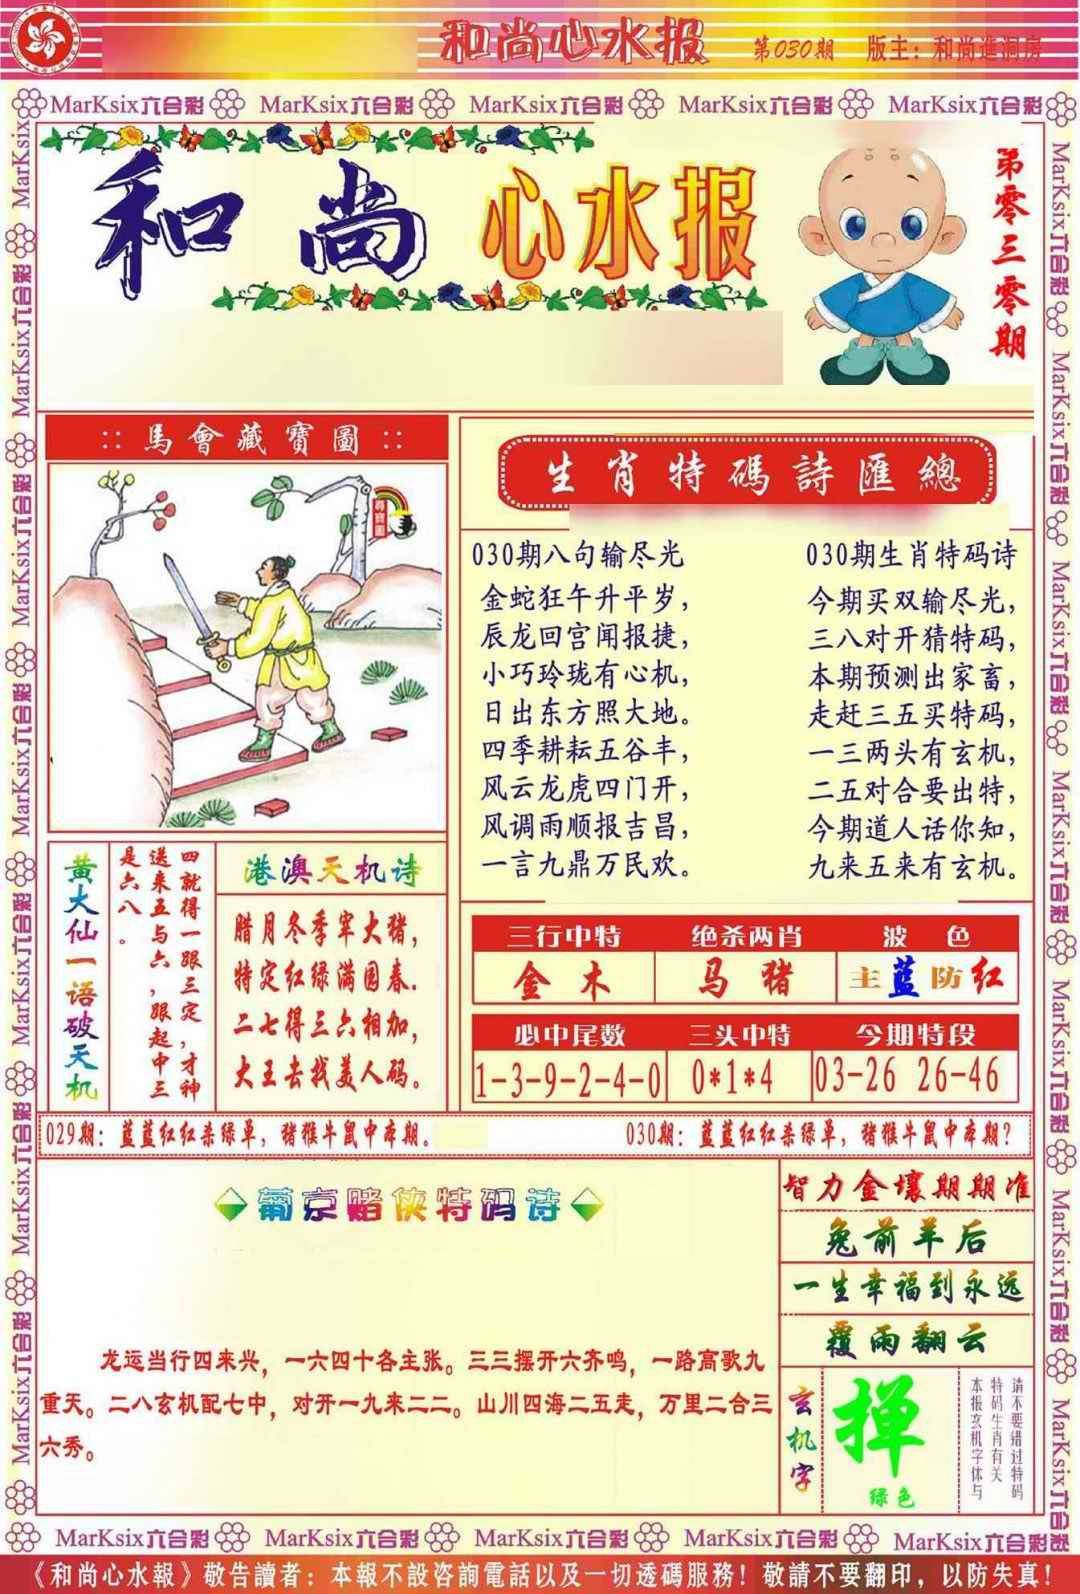 和尚心水报 第030期 版主：和尚進洞房
MarKsix六合彩 MarKsix六合彩 MarKsix六合彩 MarKsix六合彩 MarKsix六合彩
和尚心水报
第零三零期
::馬會藏寶圖::
生肖特碼詩匯總
030期八句输尽光
金蛇狂午升平岁，
辰龙回宫闻报捷，
小巧玲珑有心机，
日出东方照大地。
四季耕耘五谷丰，
风云龙虎四门开，
风调雨顺报吉昌，
一言九鼎万民欢。
030期生肖特码诗
今期买双输尽光，
三八对开猜特码，
本期预测出家畜，
走赶三五买特码，
一三两头有玄机，
二五对合要出特，
今期道人话你知，
九来五来有玄机。
黄大仙一语破天机
四就得一跟三定，才神
送来五与六，跟起中三
是六八。
港澳天机诗
腊月冬季宰大猪，
特定红绿满园春.
二七得三六相加，
大王去找美人码。
三行中特 绝杀两肖 波色
金木 马猪 主蓝防红
必中尾数 三头中特 今期特段
1-3-9-2-4-0 0*1*4 03-26 26-46
029期：蓝蓝红红杀绿单，猪猴牛鼠中本期。
030期：蓝蓝红红杀绿单，猪猴牛鼠中本期？
葡京赌侠特码诗
龙运当行四来兴，一六四十各主张。三三摆开六齐鸣，一路高歌九
重天。二八玄机配七中，对开一九来二二。山川四海二五走，万里二合三
六秀。
智力金壤期期准
兔前羊后
一生幸福到永远
覆雨翻云
玄机字
掸
绿色
请不要错过特码
特码生肖有关
本报玄机字体与
MarKsix六合彩 MarKsix六合彩 MarKsix六合彩 MarKsix六合彩 MarKsix六合彩
《和尚心水報》敬告讀者：本報不設咨詢電話以及一切透碼服務！敬請不要翻印，以防失真！